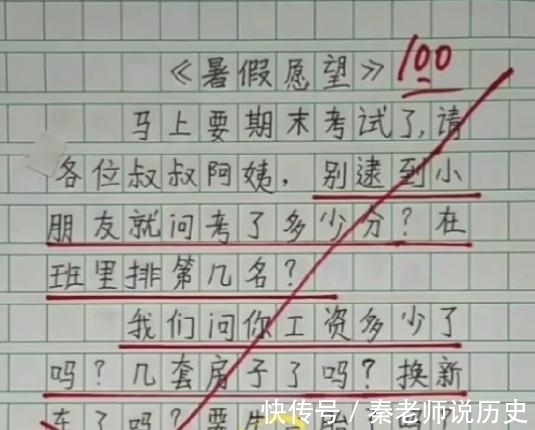 《暑假愿望》 100
马上要期末考试了,请
各位叔叔阿姨,别逮到小
朋友就问考了多少分?在
班里排第几名?
我们问你工资多少了
吗?几套房子了吗?换新
车了吗?要生
快传号/秦老师说历史